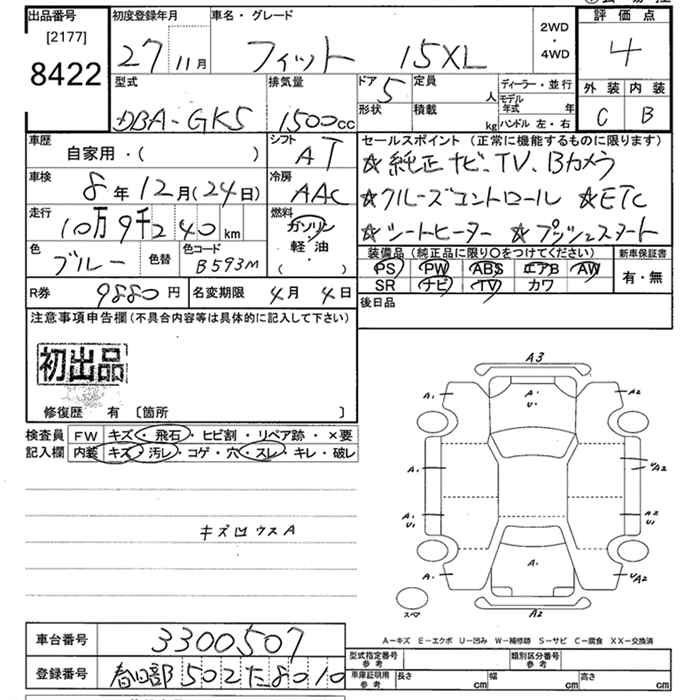 出品番号
[2177]
8422
初度登録年月 車名・グレード
27 11月 フィット 15XL
2WD
・
4WD
評価点
4
外装 内装
C B
型式 排気量
DBA-GK5 1500cc
ドア 5 定員 人
形状 積載 kg
ディーラー・並行
モデル年式 年
ハンドル 左・右
車歴
自家用・( )
シフト
AT
車検 8年12月(24日)
冷房
AAC
走行
10万9千240km
燃料
ガソリン
軽・油
( )
色
ブルー
色替
色コード
B593M
セールスポイント (正常に機能するものに限ります)
☆純正ナビ、TV、Bカメラ
☆クルーズコントロール ☆ETC
☆シートヒーター ☆プッシュスタート
装備品 (純正品に限り○をつけてください)
PS PW ABS エアB AW
SR ナビ TV カワ
新車保証書
有・無
後日品
R券 9880円 名変期限 4月4日
注意事項申告欄(不具合内容等は具体的に記入して下さい)
初出品
修復歴 有 〔箇所 〕
検査員 FW キズ・飛石・ヒビ割・リペア跡・×要
記入欄 内装 キズ・汚レ・コゲ・穴・スレ・キレ・破レ
キズ凹ウスA
A3
A・ A・ U・ A2
A・ U/A2
A・ U1 A2 U1
A・ A・ U/A2
スペア A2
A－キズ E－エクボ U－凹み W－補修跡 S－サビ C－腐食 XX－交換済
車台番号 3300507
登録番号 春日部 502た8010
型式指定番号 参考 類別区分番号 参考
車庫証明用 参考 長さ cm 幅 cm 高さ cm